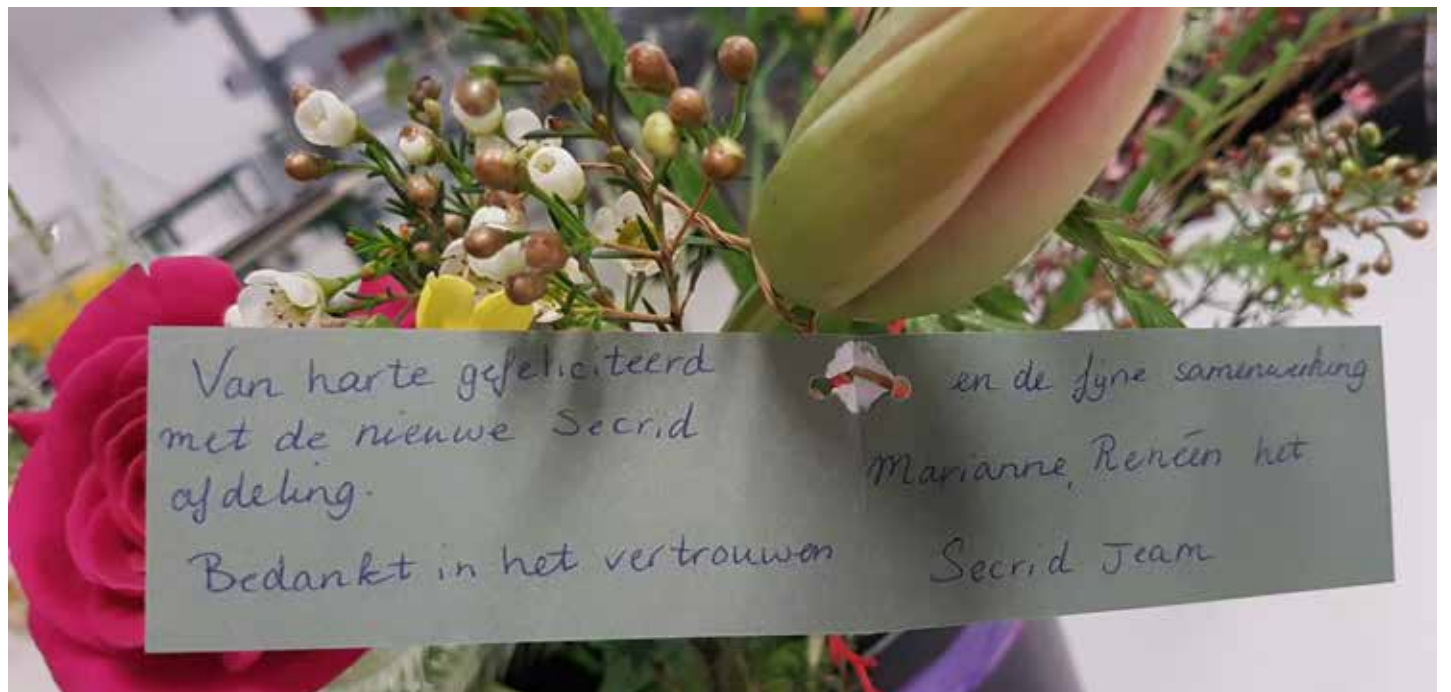 Van harte gefeliciteerd
met de nieuwe Secrid
afdeling.
Bedankt in het vertrouwen
en de fijne samenwerking
Marianne, Renéen het
Secrid Team